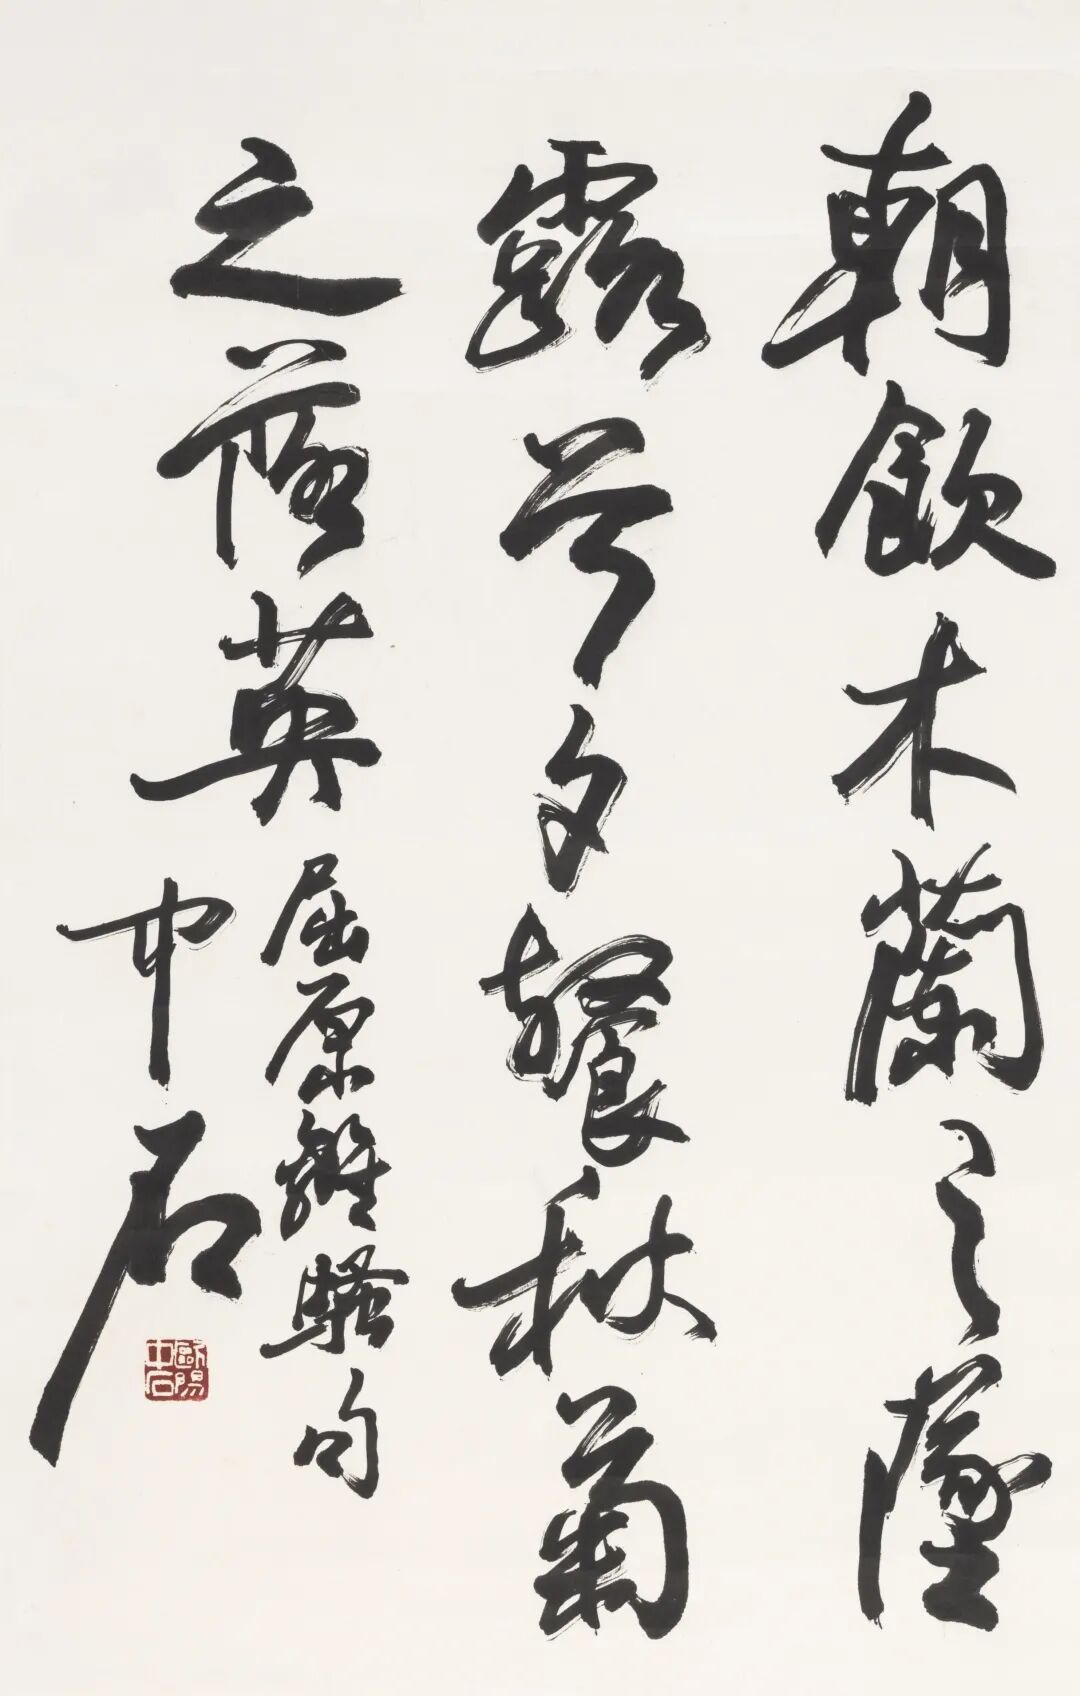 朝飲木蘭之墜
露兮夕餐秋菊
之落英
屈原離騷句
中石
歐陽中石